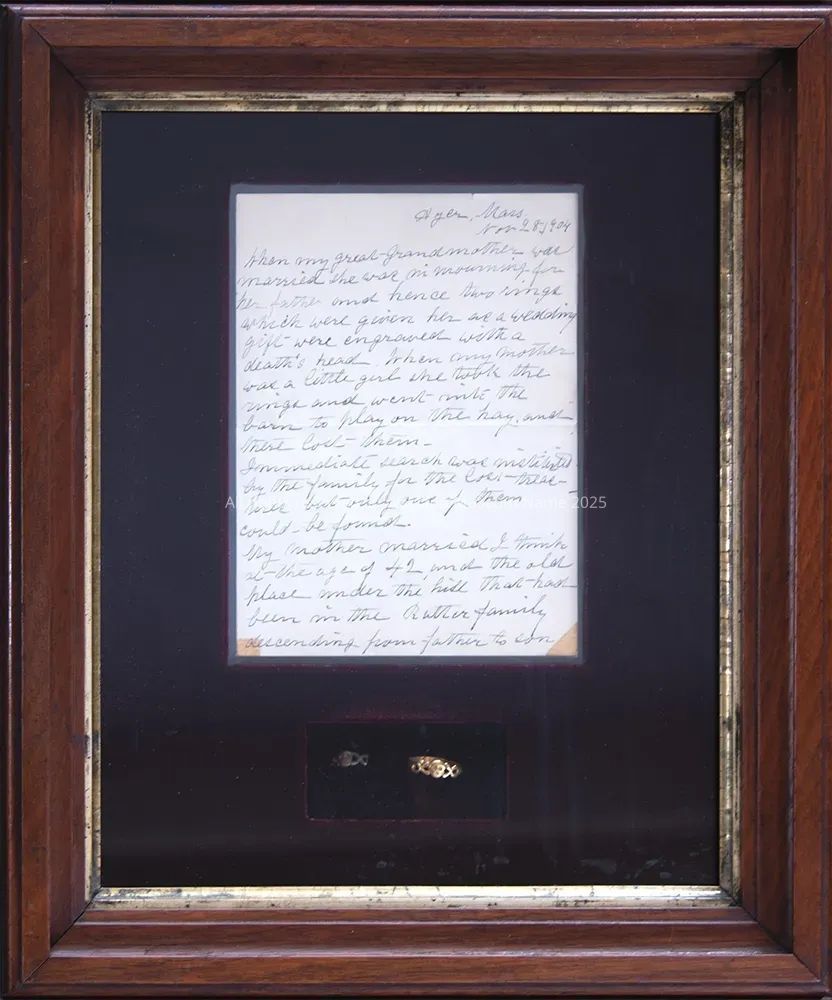 Ayer, Mass,
Nov 28, 1904
When my great-grandmother was
married she was in mourning for
her father and hence two rings
which were given her as a wedding
gift were engraved with a
death's head. When my mother
was a little girl she took the
rings and went into the
barn to play on the hay, and
there lost them.
Immediate search was instituted
by the family for the lost treas-
ures but only one of them
could be found.
My mother married I think
at the age of 42, and the old
place under the hill that had
been in the Rutter family
descending from father to son
Name 2025